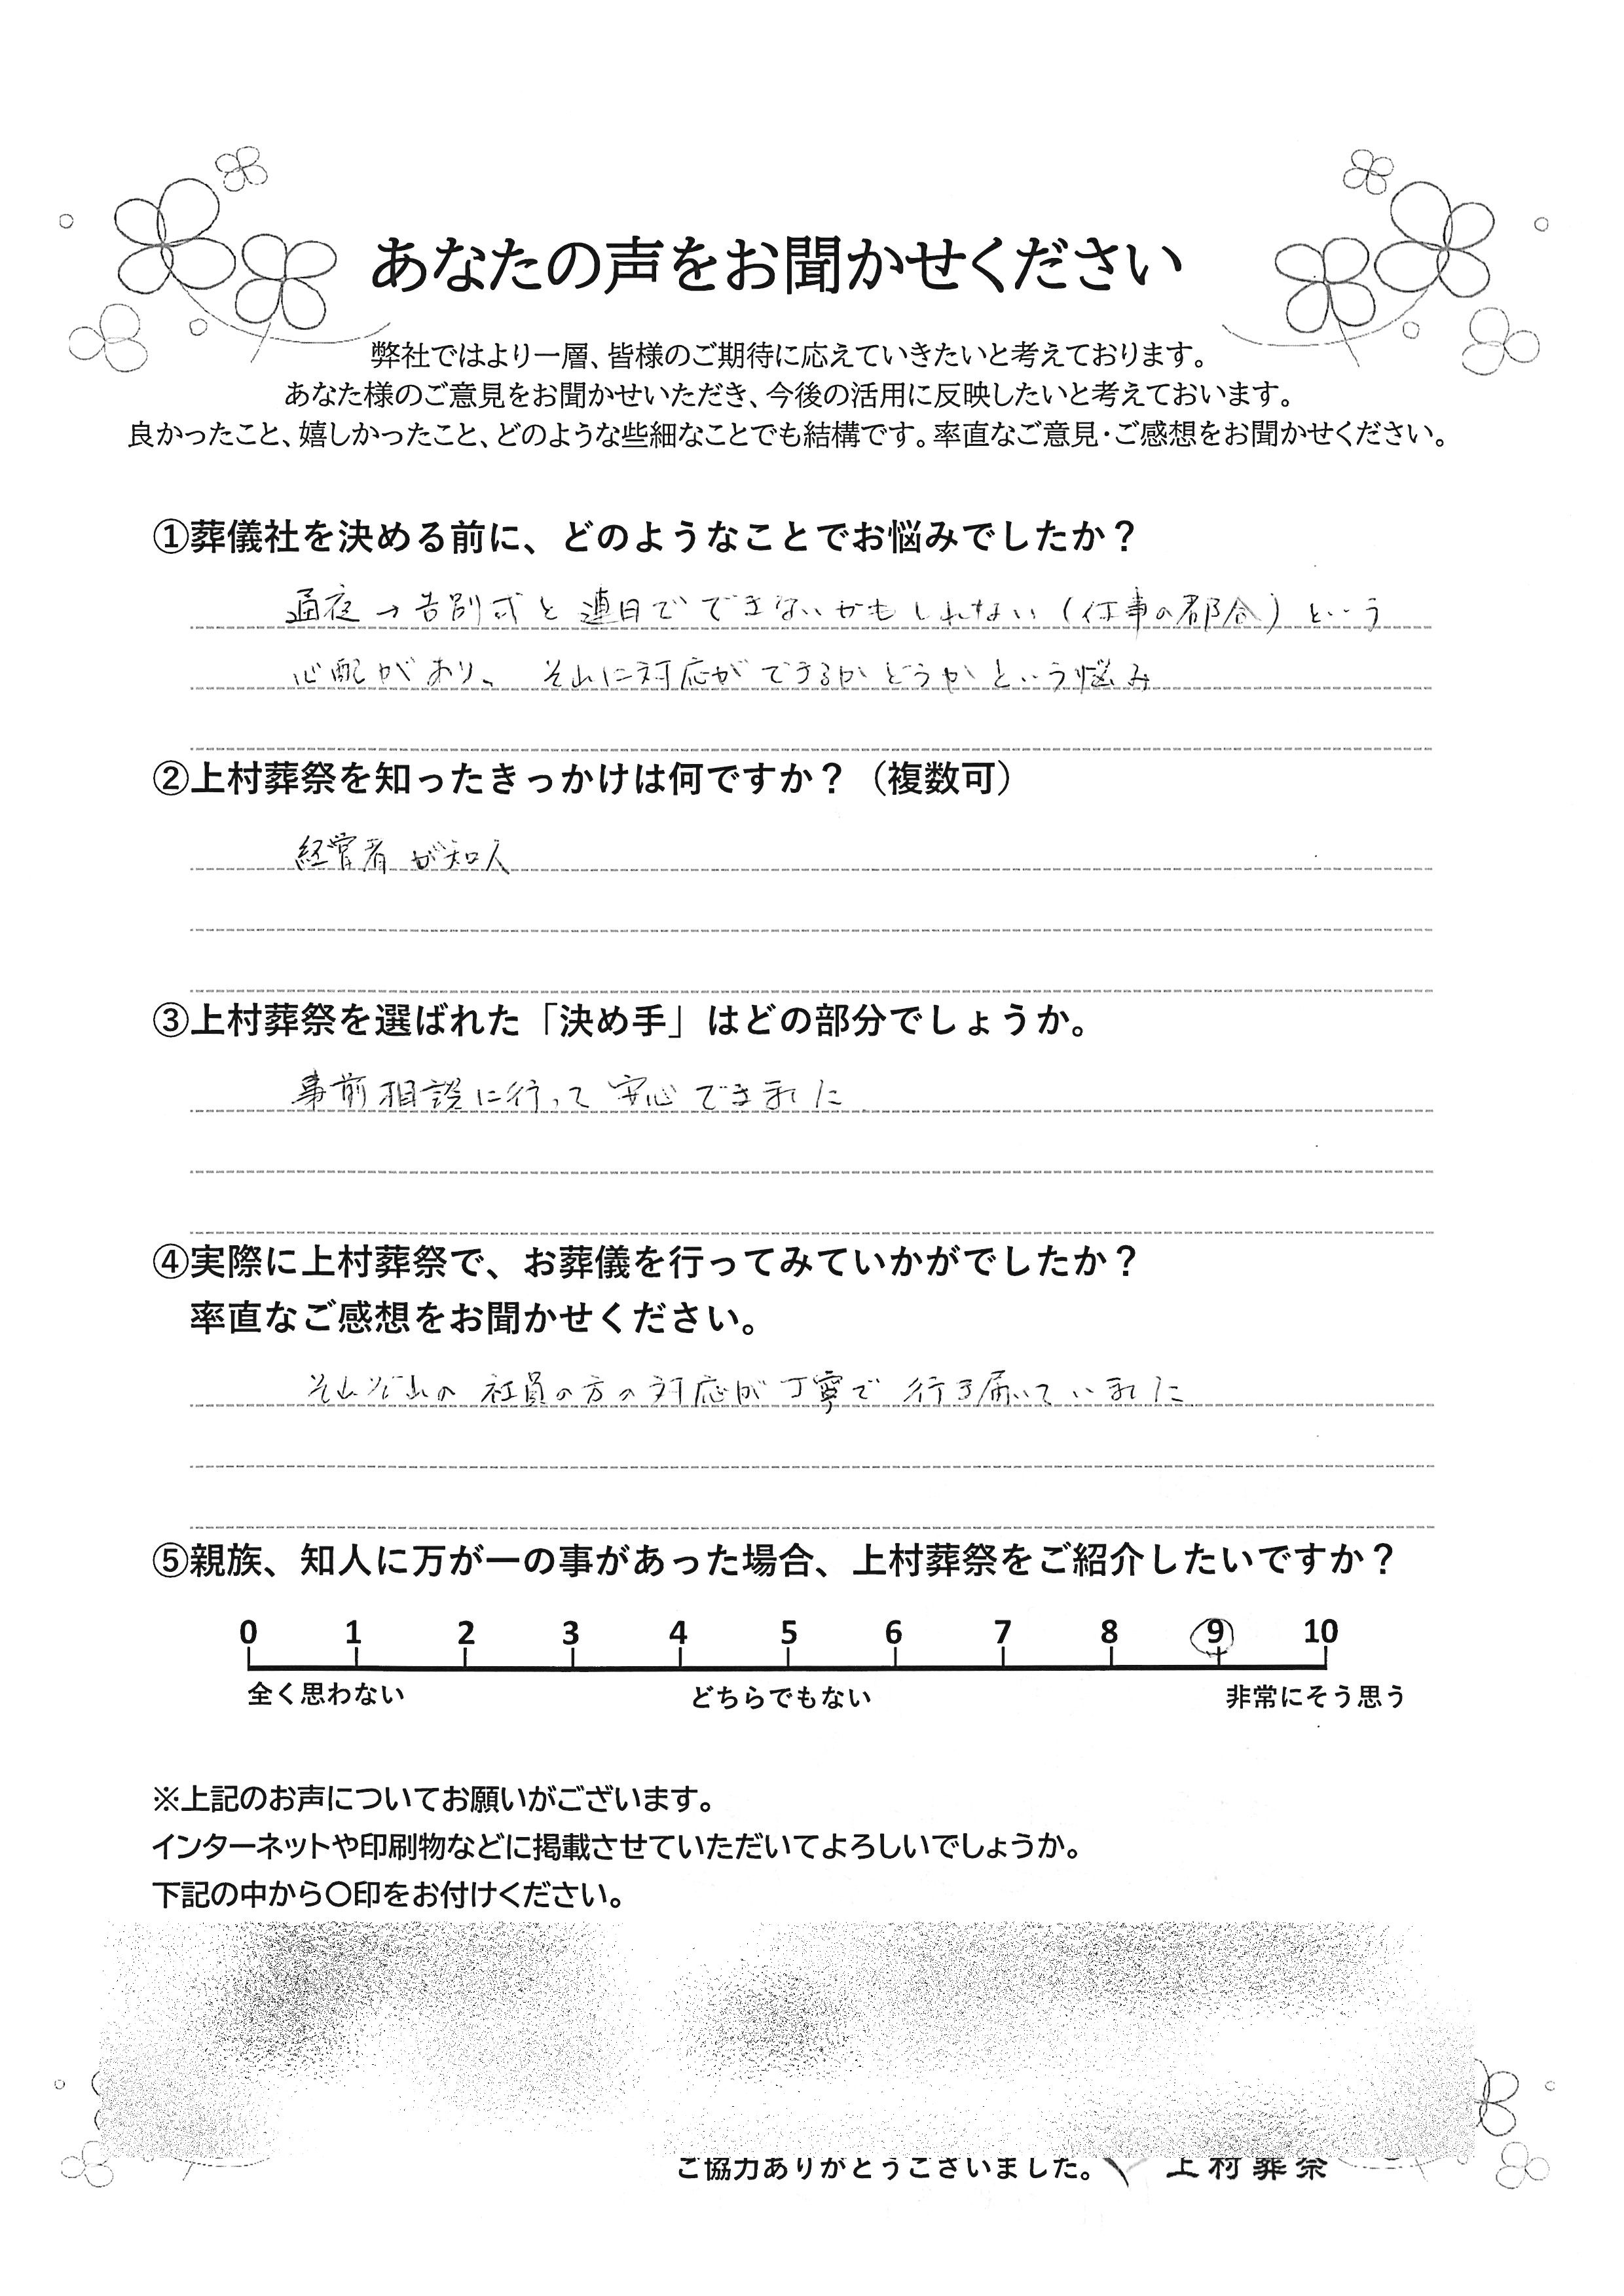 あなたの声をお聞かせください
弊社ではより一層、皆様のご期待に応えていきたいと考えております。
あなた様のご意見をお聞かせいただき、今後の活用に反映したいと考えておいます。
良かったこと、嬉しかったこと、どのような些細なことでも結構です。率直なご意見・ご感想をお聞かせください。
①葬儀社を決める前に、どのようなことでお悩みでしたか？
通夜→告別式と連日でできないかもしれない（仕事の都合）という
心配があり、それに対応ができるかどうかという悩み
②上村葬祭を知ったきっかけは何ですか？（複数可）
経営者が知人
③上村葬祭を選ばれた「決め手」はどの部分でしょうか。
事前相談に行って安心できました
④実際に上村葬祭で、お葬儀を行ってみていかがでしたか？
率直なご感想をお聞かせください。
それぞれの社員の方の対応が丁寧で行き届いていました
⑤親族、知人に万が一の事があった場合、上村葬祭をご紹介したいですか？
0 1 2 3 4 5 6 7 8 9 10
全く思わない どちらでもない 非常にそう思う
※上記のお声についてお願いがございます。
インターネットや印刷物などに掲載させていただいてよろしいでしょうか。
下記の中から〇印をお付けください。
ご協力ありがとうございました。 上村葬祭